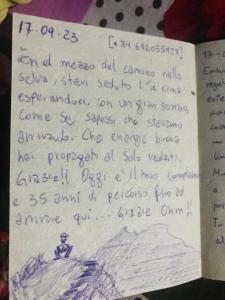 17.09.23 [+34 682035927]
En el mezzo del camino nella
selva, stavi seduto lì in cima
esperandoci, con un gran sorriso,
come se sapessi che stavamo
arrivando. Che energia buona
hai propagato al solo vederti.
Grazie!! Oggi è il mio compleanno
e 35 anni di percorso fino ad
arrivare qui... Grazie Ohm!!
17-